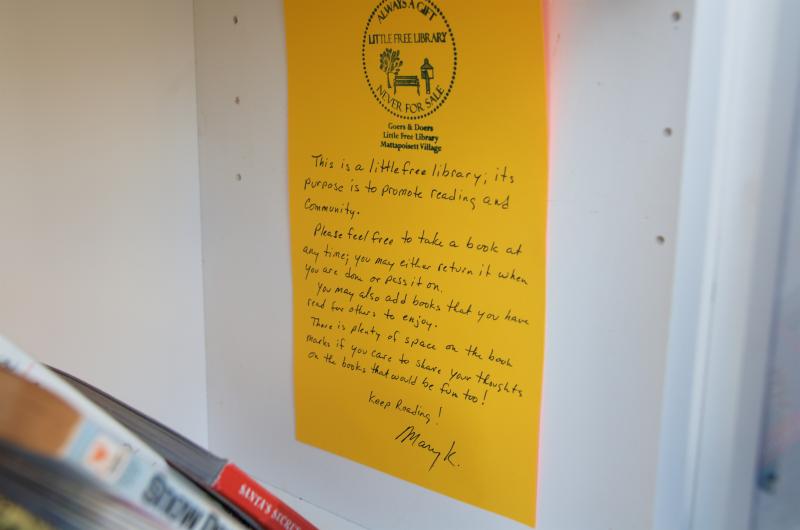 ALWAYS A GIFT
LITTLE FREE LIBRARY
NEVER FOR SALE
Goers & Doers
Little Free Library
Mattapoisett Village
This is a little free library; its
purpose is to promote reading and
Community.
Please feel free to take a book at
any time; you may either return it when
you are done or pass it on.
You may also add books that you have
read for others to enjoy.
There is plenty of space on the book
marks if you care to share your thoughts
on the books that would be fun too!
Keep Reading!
Mary K.
SANTA'S SECRET